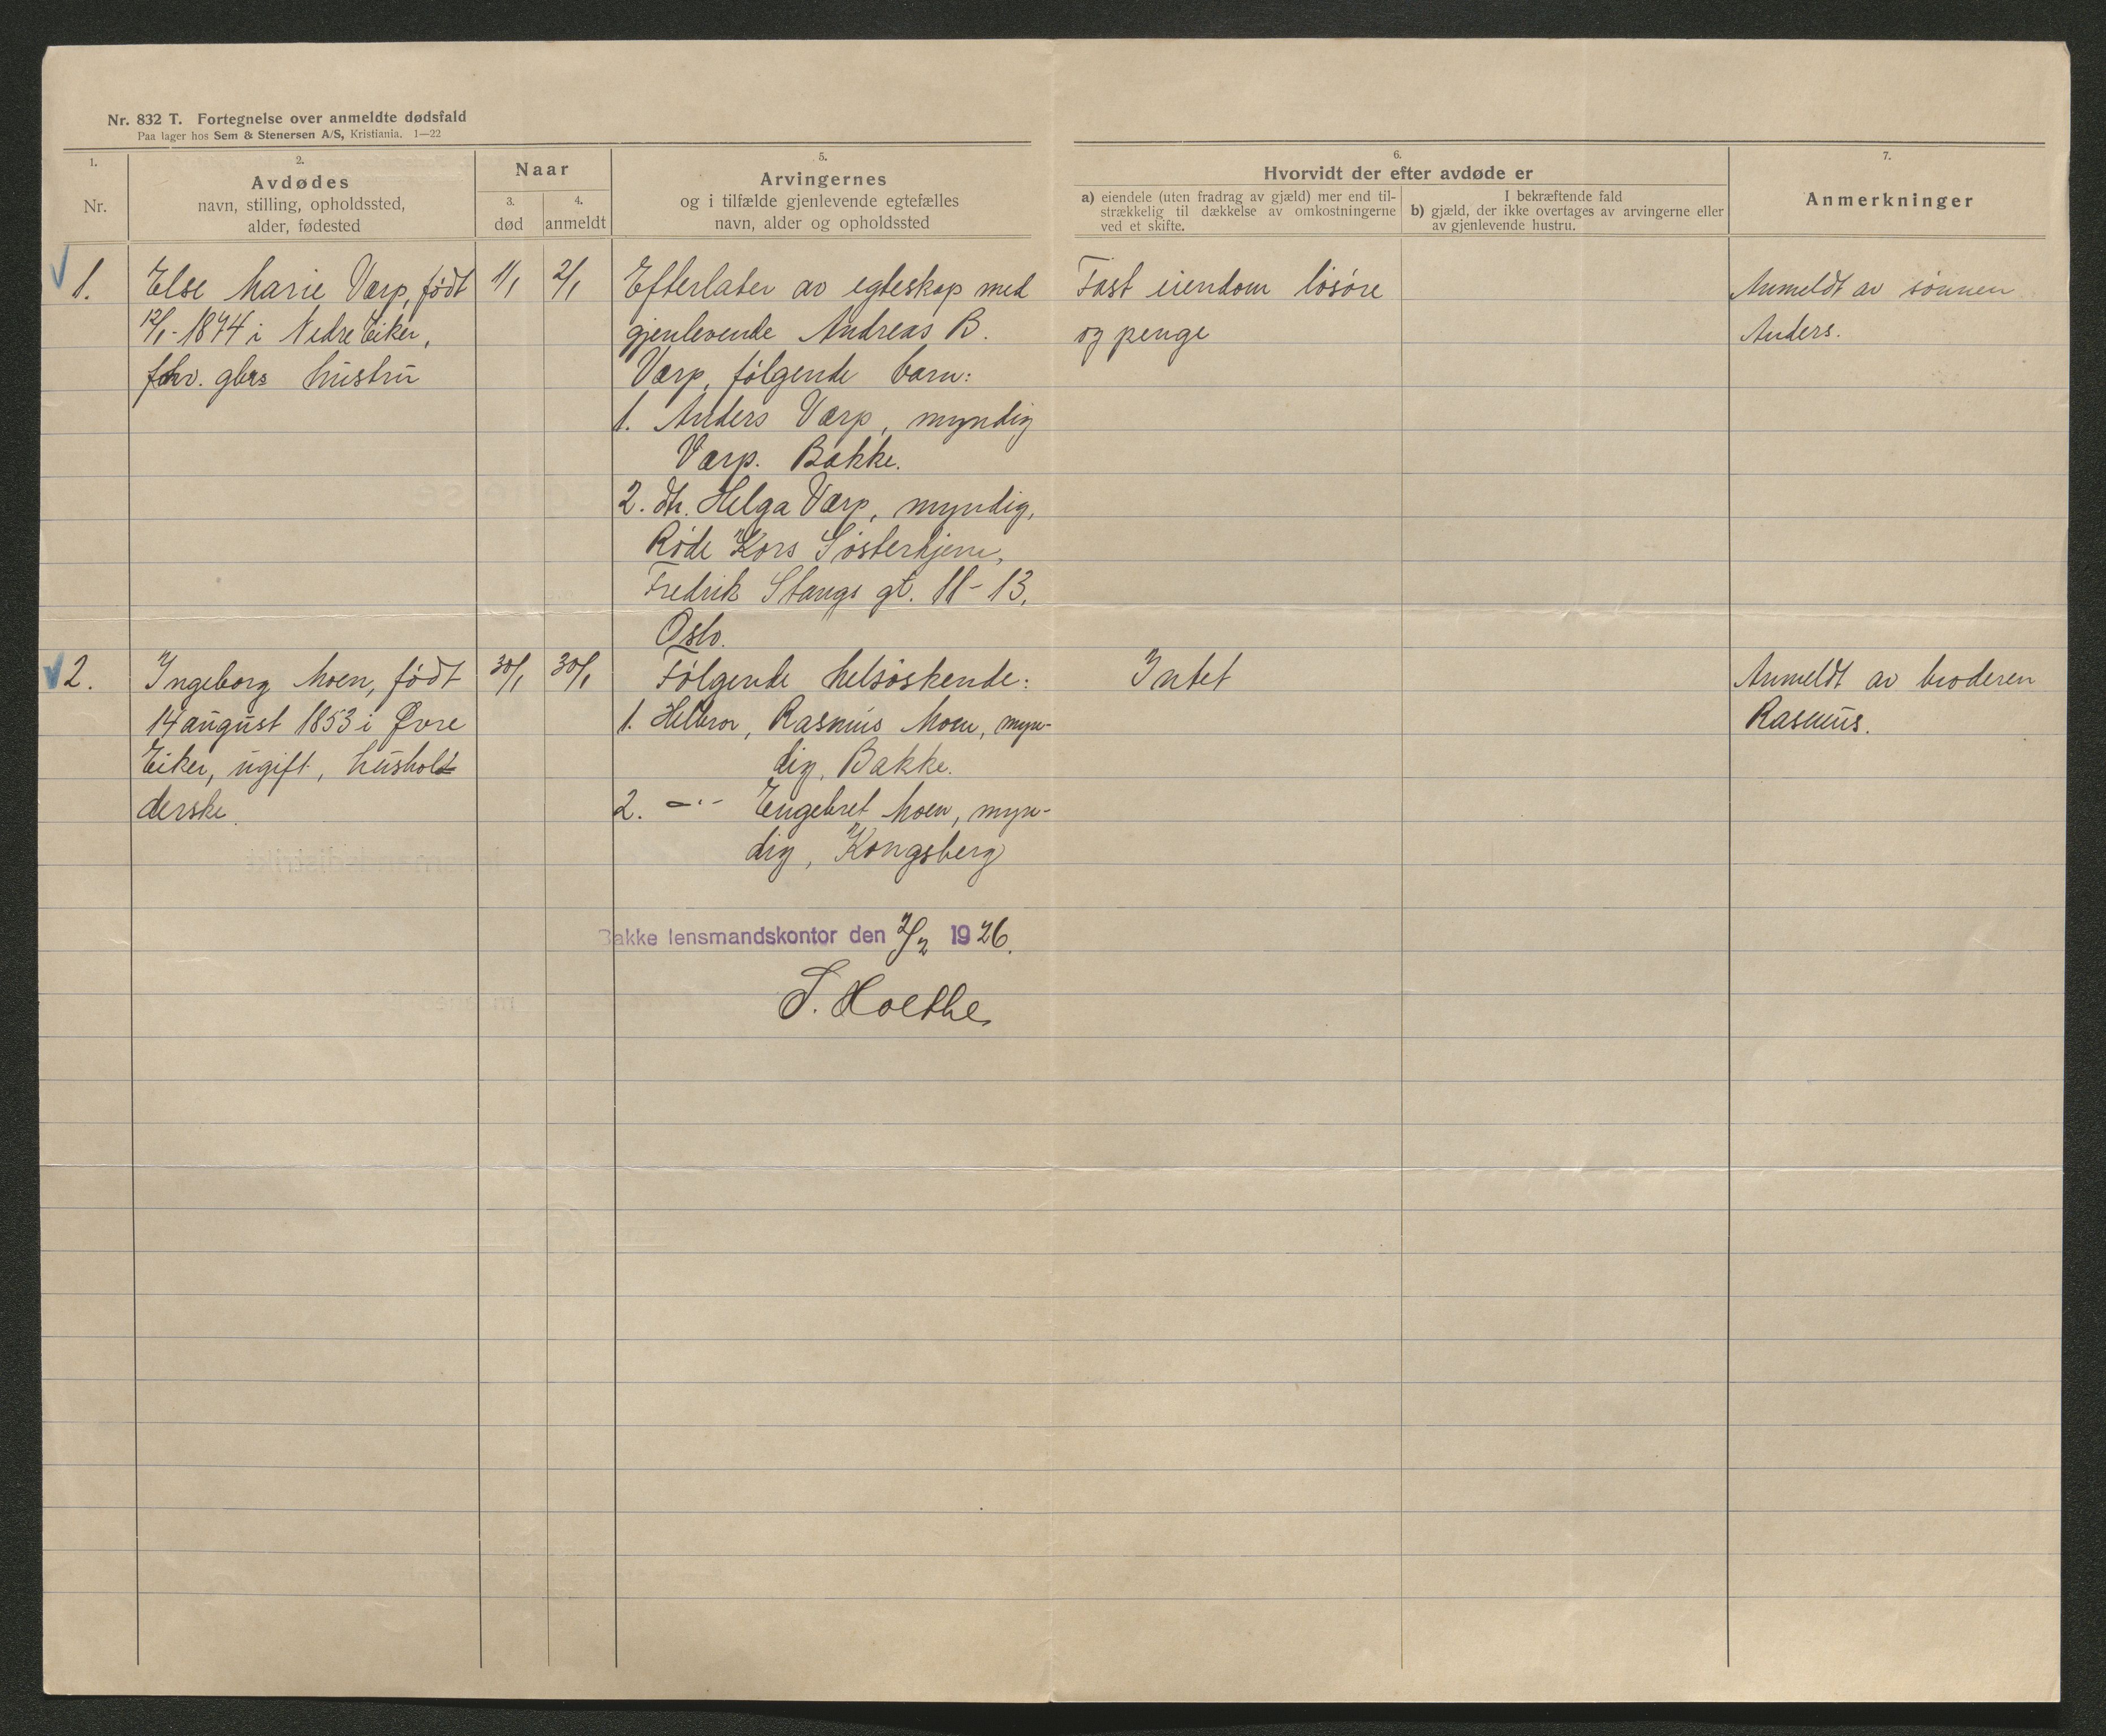 Nr. 832 T. Fortegnelse over anmeldte dødsfald
Paa lager hos Sem & Stenersen A/S, Kristiania. 1—22
1.
Nr.
2.
Avdødes
navn, stilling, opholdssted,
alder, fødested
Naar
3.
død
4.
anmeldt
5.
Arvingernes
og i tilfælde gjenlevende egtefælles
navn, alder og opholdssted
6.
Hvorvidt der efter avdøde er
a) eiendele (uten fradrag av gjæld) mer end til-
strækkelig til dækkelse av omkostningerne
ved et skifte.
I bekræftende fald
b) gjæld, der ikke overtages av arvingerne eller
av gjenlevende hustru.
7.
Anmerkninger
1.
Else Marie Værp, født
12/1-1874 i Nedre Eiker,
fhv. gbrs hustru
1/1
2/1
Efterlater av egteskap med
gjenlevende Andreas B.
Værp, følgende barn:
1. Anders Værp, myndig
Værp. Bakke.
2. Helga Værp, myndig,
Røde Kors Søsterhjem,
Fredrik Stangs gt. 11-13,
Oslo.
Fast eiendom løsøre
og penge
Anmeldt av sønnen
Anders.
2.
Ingeborg Moen, født
14 august 1853 i Øvre
Eiker, ugift, hushol
derske.
30/1
30/1
Følgende helsøskende:
1. Helbror, Rasmus Moen, myn-
dig, Bakke.
2. -"- Engebret Moen, myn-
dig, Kongsberg
Intet
Anmeldt av broderen
Rasmus.
Bakke lensmandskontor den 2/2 1926.